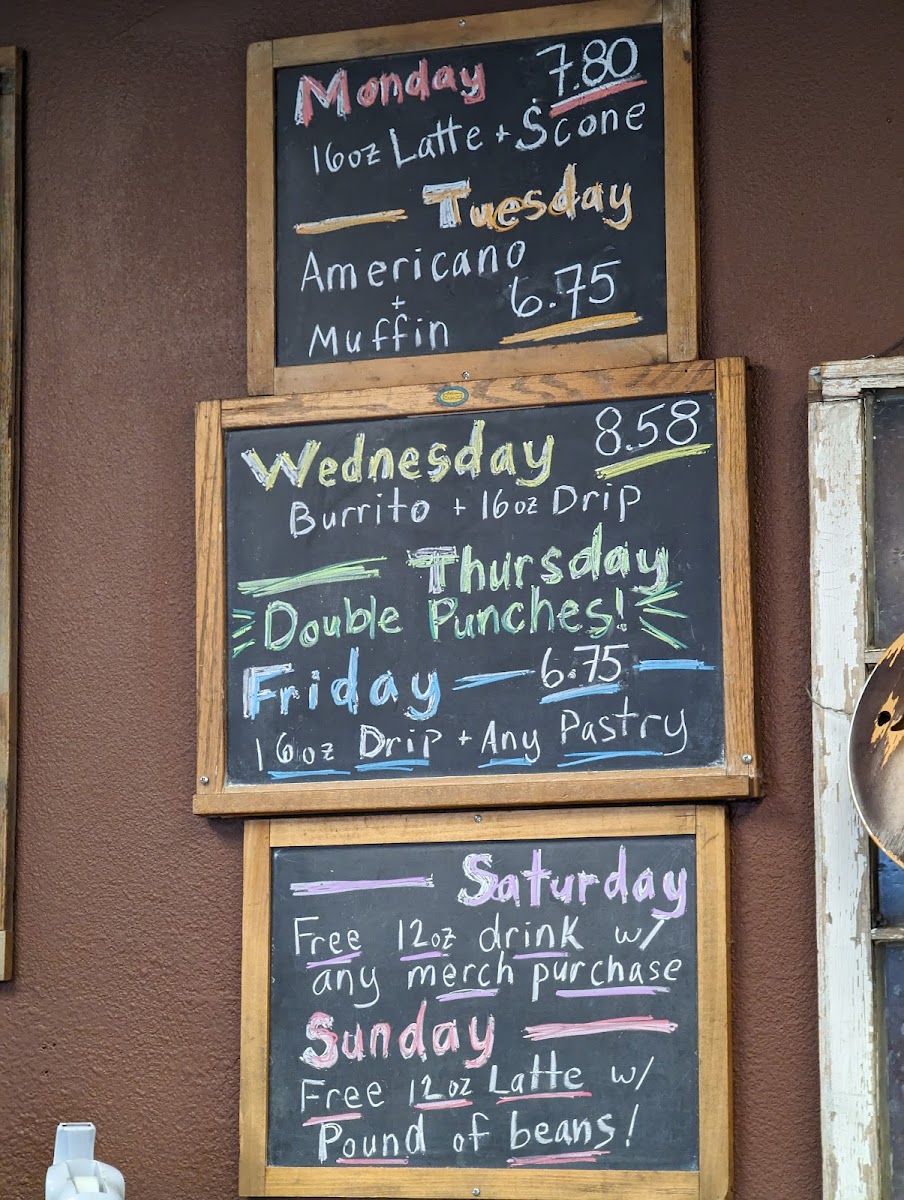 Monday 7.80
16oz Latte + Scone
Tuesday
Americano
+ 6.75
Muffin
Wednesday 8.58
Burrito + 16oz Drip
Thursday
Double Punches!
Friday 6.75
16oz Drip + Any Pastry
Saturday
Free 12oz drink w/
any merch purchase
Sunday
Free 12oz Latte w/
Pound of beans!